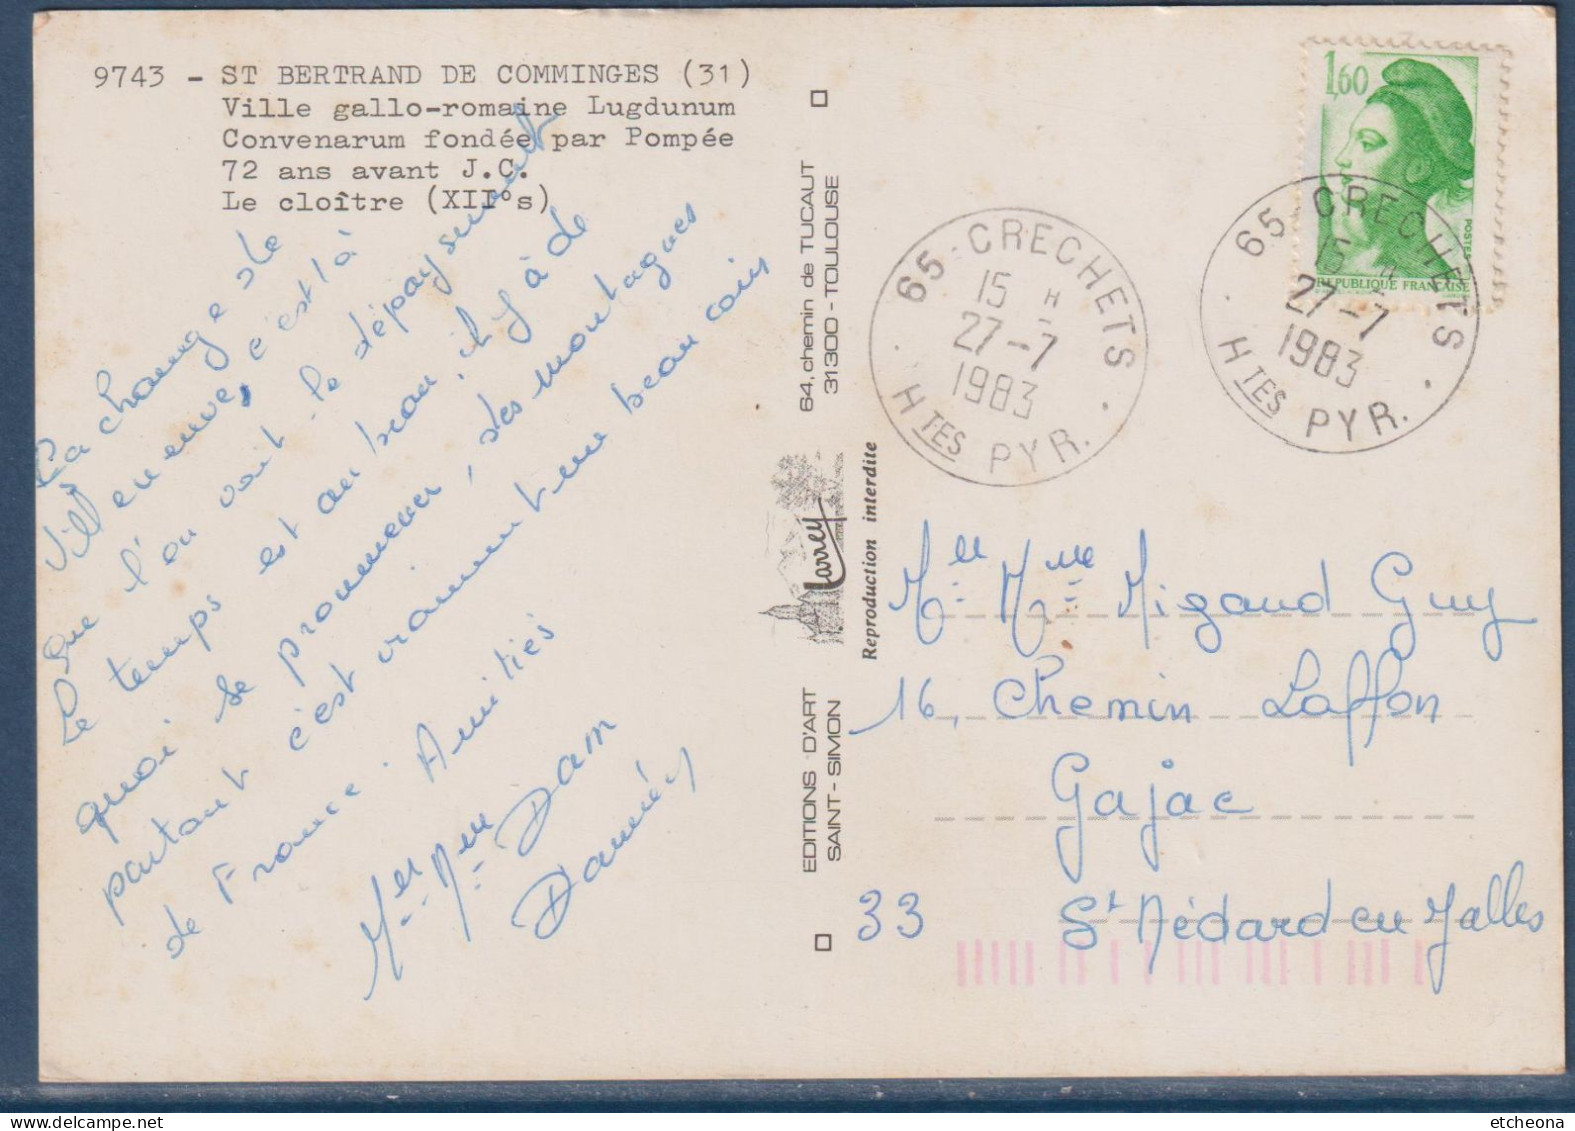 9743 - ST BERTRAND DE COMMINGES (31)
Ville gallo-romaine Lugdunum
Convenarum fondée par Pompée
72 ans avant J.C.
Le cloître (XII°s)
Ça change de
Villeneuve, c'est là
que l'on voit le dépaysement
Le temps est au beau, il y a de
quoi se promener, des montagnes
partout c'est vraiment un beau coin
de France. Amitiés
Mr et Mme Dam
Damien
EDITIONS D'ART
SAINT-SIMON
64, chemin de TUCAUT
31300 - TOULOUSE
Larrey
Reproduction interdite
65 CRECHETS
15 H
27-7
1983
HTES PYR.
1,60
POSTES
REPUBLIQUE FRANÇAISE
65 CRECHETS
15 H
27-7
1983
HTES PYR.
Mr et Mme Migaud Guy
16, Chemin Laffon
Gajac
33 St Médard en Jalles
etcheona